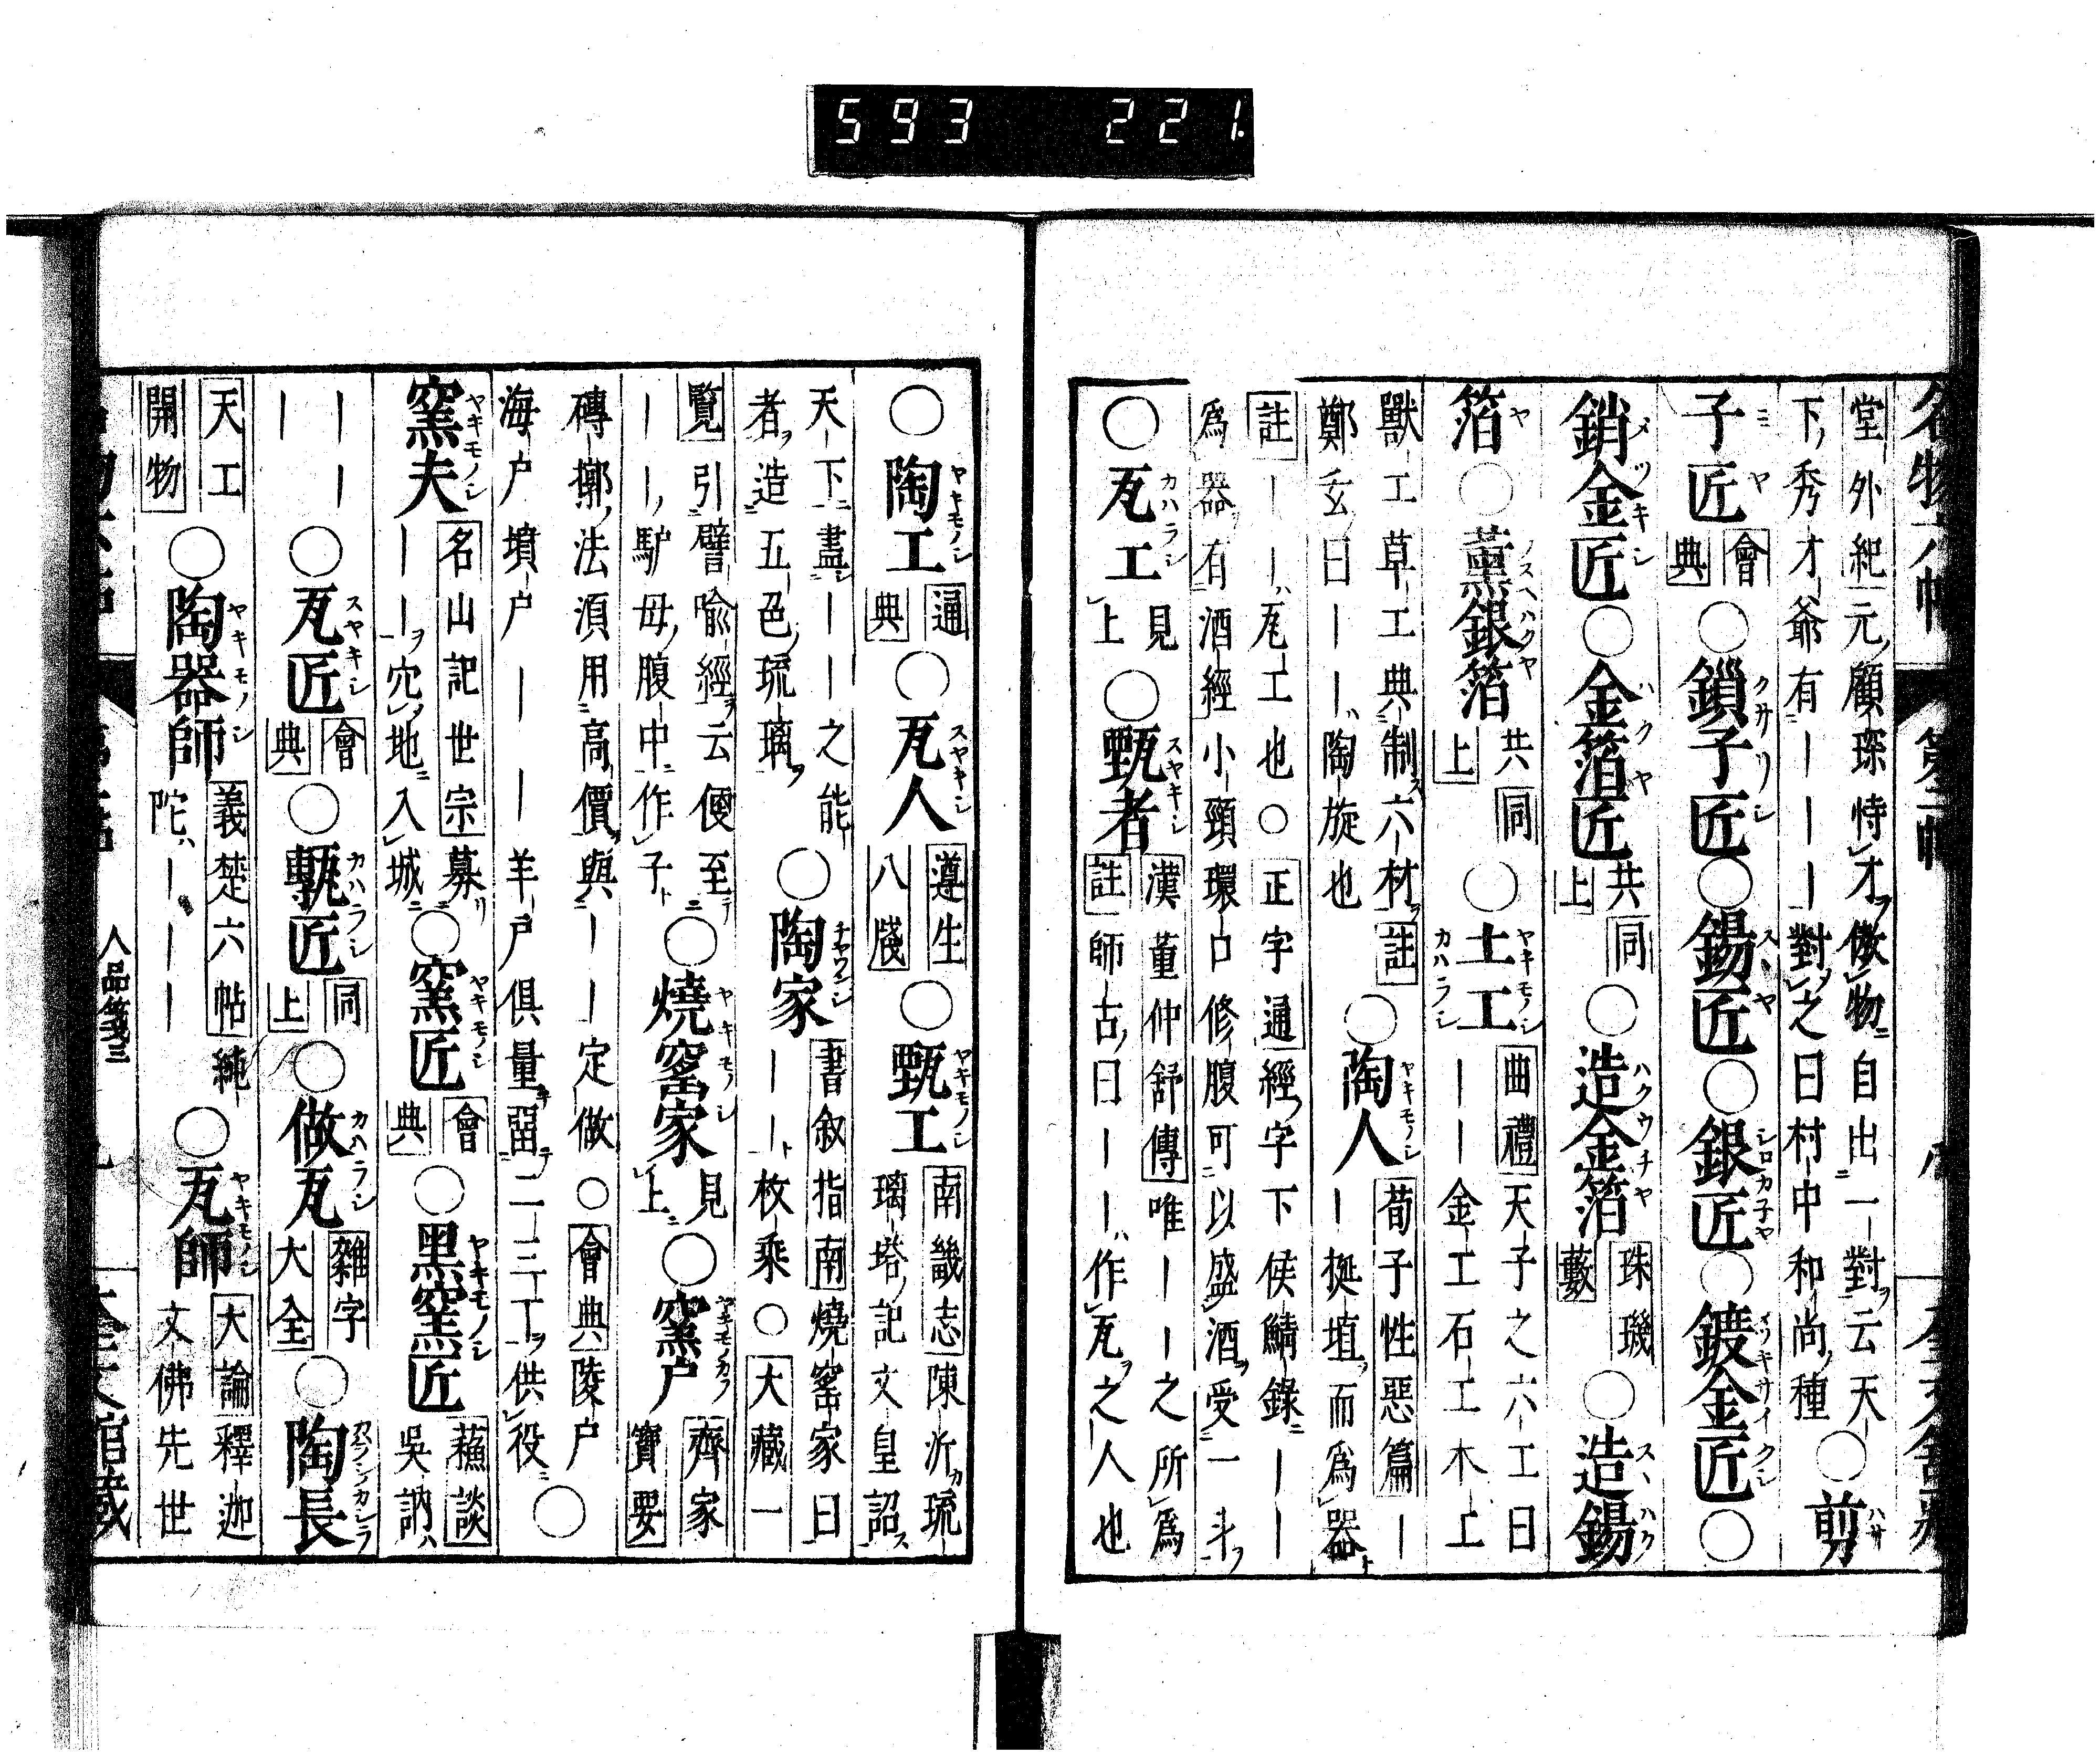 593 221.
堂外紀元顧琛恃才傲物自出一對云天
下秀才爺有———對之曰村中和尚種○剪
子匠會典○鎖子匠○錫匠○銀匠○鍍金匠○
銷金匠○金箔匠共同上○造金箔珠璣藪○造錫
箔○薰銀箔共上同○土工曲禮天子之六工曰
——金工石工木工
獸工草工典制六材註
鄭玄曰——陶旋也○陶人荀子性惡篇—
—挻埴而爲器
註——瓦工也○正字通經字下侯鯖錄——
爲器有酒經小頸環口修腹可以盛酒受一斗
○瓦工見上○甄者漢董仲舒傳唯——之所爲
註師古曰——作瓦之人也
○陶工通典○瓦人遵生八牋○甄工南畿志陳沂琉
璃塔記文皇詔
天下盡——之能
者造五色琉璃○陶家書叙指南燒窰家曰
——枚乘○大藏一
覽引譬喩經云便至
——驢母腹中作子○燒窰家見上○窯户齊家
寶要
磚擲法須用高價與——定做○會典陵户
海户墳户——羊户俱量留二三丁供役○
窯夫名山記世宗募
——穴地入城○窯匠會典○黑窯匠蘓談
吳訥
——
——○瓦匠會典○甎匠同上○做瓦雜字大全○陶長
天工
開物○陶器師義楚六帖純
陀———○瓦師大論釋迦
文佛先世
人品箋三